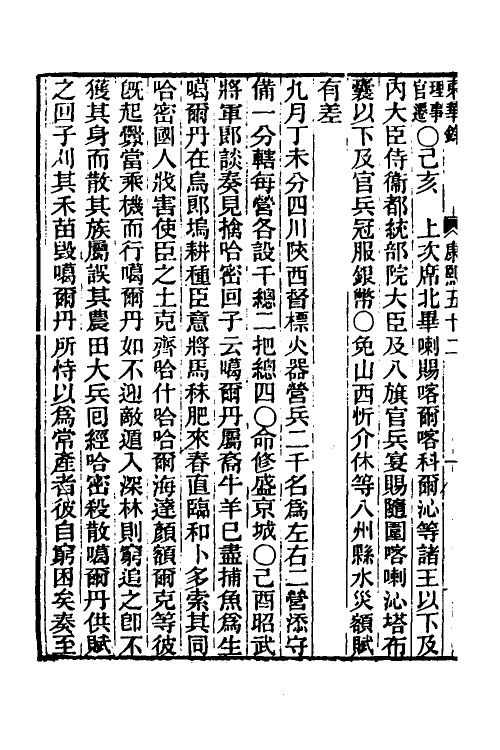 東華錄 康熙五十二
理事官遷○己亥　上次席北畢喇賜喀爾喀科爾沁等諸王以下及
內大臣侍衞都統部院大臣及八旗官兵宴賜隨圍喀喇沁塔布
囊以下及官兵冠服銀幣○免山西忻介休等八州縣水災額賦
有差
九月丁未分四川陝西督標火器營兵二千名爲左右二營添守
備一分轄每營各設千總二把總四○命修盛京城○己酉昭武
將軍郞談奏見擒哈密回子云噶爾丹屬裔牛羊已盡捕魚爲生
噶爾丹在烏郞塢耕種臣意將馬秣肥來春直臨和卜多索其同
哈密國人戕害使臣之土克齊哈什哈哈爾海達顏額爾克等彼
旣起釁當乘機而行噶爾丹如不迎敵遁入深林則窮追之卽不
獲其身而散其族屬誤其農田大兵囘經哈密殺散噶爾丹供賦
之回子刈其禾苗毀噶爾丹所恃以爲常產者彼自窮困矣奏至